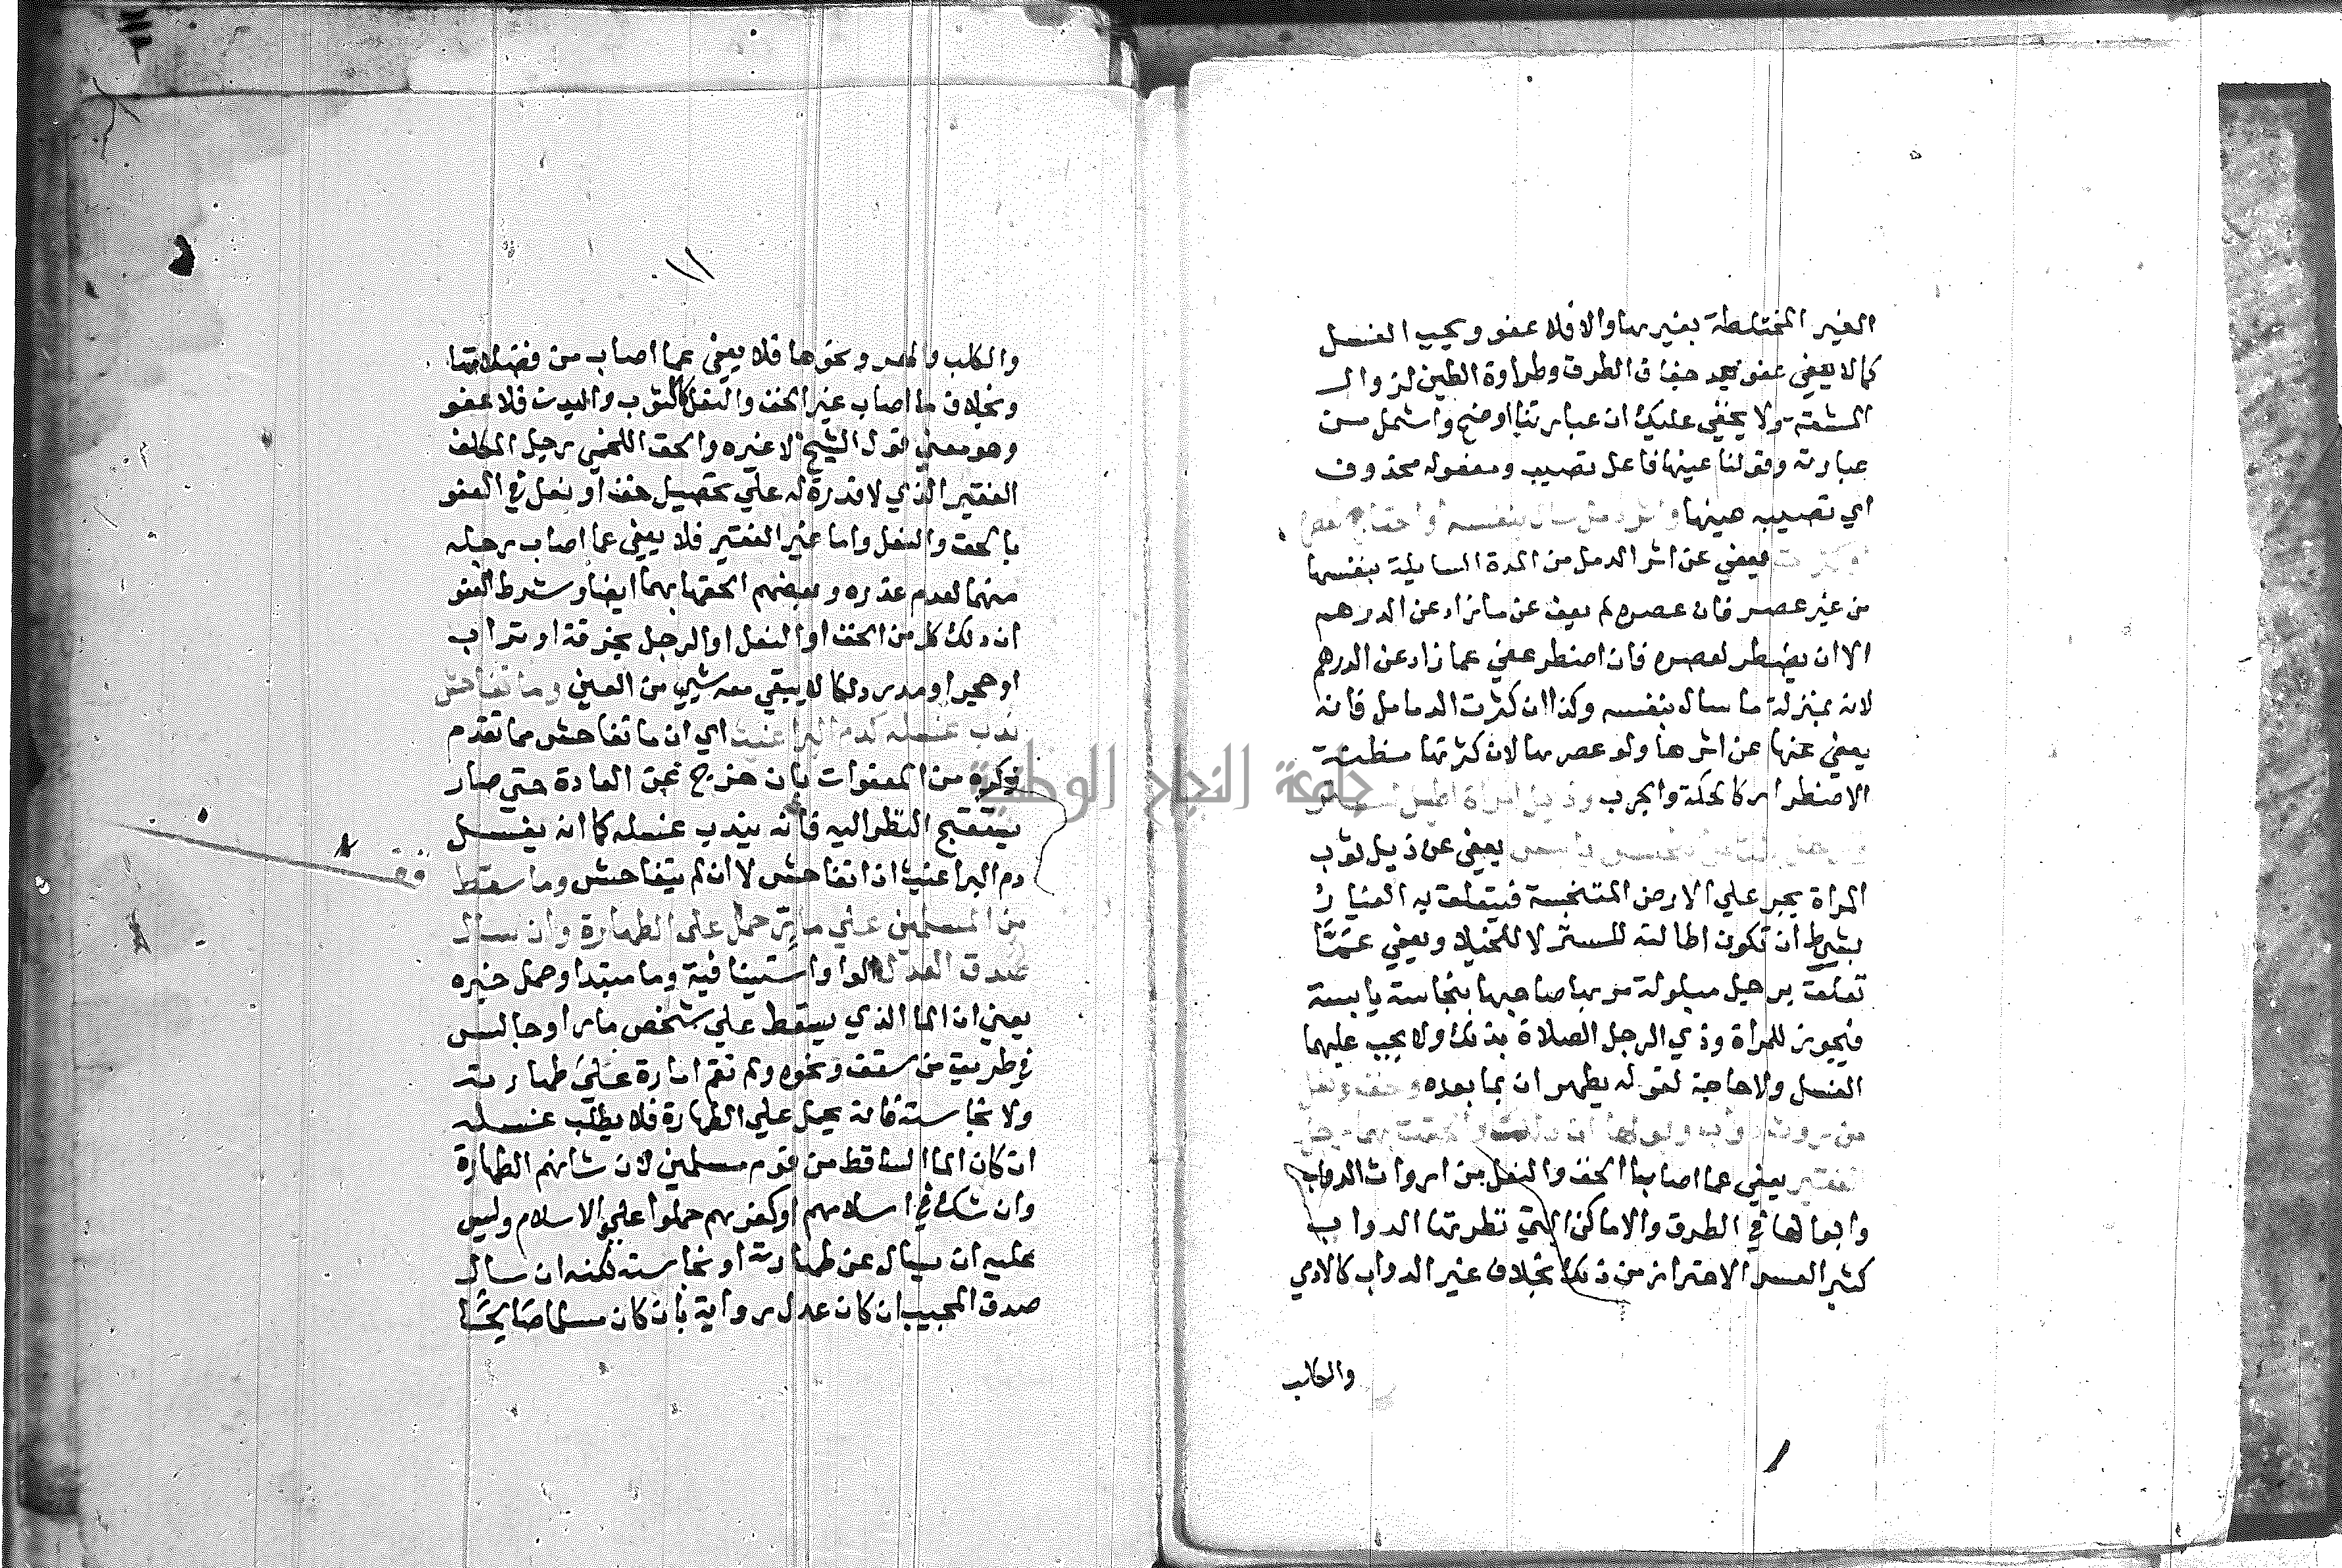 الغير المختلطة بغيرها والا فلا عفو ويجب الغسل
كما لا يعفي عفو بعد جفاف الطرق وطراوة الطين لزوال
المشقة ولا يخفي عليك ان عبارتنا اوضح واشمل من
عبارته وقولنا عينها فاعل تصيب ومفعوله محذوف
اي تصيبه عينها واثر دمل سال بنفسه او احتاج لعصر
او كثرت فيعفي عن اثر الدمل من المدة السايلة بنفسها
من غير عصر فان عصره لم يعف عن ما زاد عن الدرهم
الا ان يضطر لعصره فان اضطر عفي عما زاد عن الدرهم
لانه بمنزلة ما سال بنفسه وكذا ان كثرت الدمامل فانه
يعفي عنها عن اثرها ولو عصرها لان كثرتها مظنة
الاضطرار كالحكة والجرب وذيل امراة اطيل لستر
يعفي عن ذيل ثوب
المراة يجر علي الارض المتنجسة فيتعلق به الغبار
بشرط ان تكون اطالته للستر لا للخيلا ويعفي عما
تعلق برجل مبلولة مر بها صاحبها بنجاسة يابسة
فيجوز للمراة وذي الرجل الصلاة بذلك ولا يجب عليهما
الغسل ولا حاجة لقوله يطهران بما بعده وخف ونعل
من روث دواب وبولها ان دلكت والحقت بهما رجل
الفقير يعفي عما اصاب الخف والنعل من ارواث الدواب
وابوالها في الطرق والاماكن التي تطرقها الدواب
كثيرا لعسر الاحتراز من ذلك بخلاف غير الدواب كالادمي
والكلب
١١
والكلب والهر ونحوها فلا يعفي عما اصاب من فضلاتها
وبخلاف ما اصاب غير الخف والنعل كالثوب والبدن فلا عفو
وهو معني قول الشيخ لا غيره والحق اللخمي رجل المكلف
الفقير الذي لا قدرة له علي تحصيل خف او نعل في العفو
بالخف والنعل واما غير الفقير فلا يعفي عما اصاب رجله
منهما لعدم عذره وبعضهم الحقها بهما ايضا وشرط العفو
ان دلك كل من الخف او النعل او الرجل بخرقة او تراب
او حجر او مدر دلكا لا يبقي معه شيي من العين وما تفاحش
ندب غسله كدم البراغيث اي ان ما تفاحش مما تقدم
ذكره من المعفوات بان خرج عن العادة حتي صار
يستقبح النظر اليه فانه يندب غسله كما انه يغسل
دم البراغيث ان تفاحش لا ان لم يتفاحش وما سقط
من المسلمين علي مار حمل علي الطهارة وان سال
صدق العدل الواو استينافية وما مبتدا وحمل خبره
يعني ان الما الذي يسقط علي شخص مار او جالس
في طريق من سقف ونحوه ولم تقم امارة علي طهارته
ولا نجاسته فانه يحمل علي الطهارة فلا يطلب غسله
ان كان الما الساقط من قوم مسلمين لان شانهم الطهارة
وان شك في اسلامهم او كفرهم حملوا علي الاسلام وليس
عليه ان يسال عن طهارته او نجاسته لكنه ان سال
صدق المجيب ان كان عدل رواية بان كان مسلما صالحا